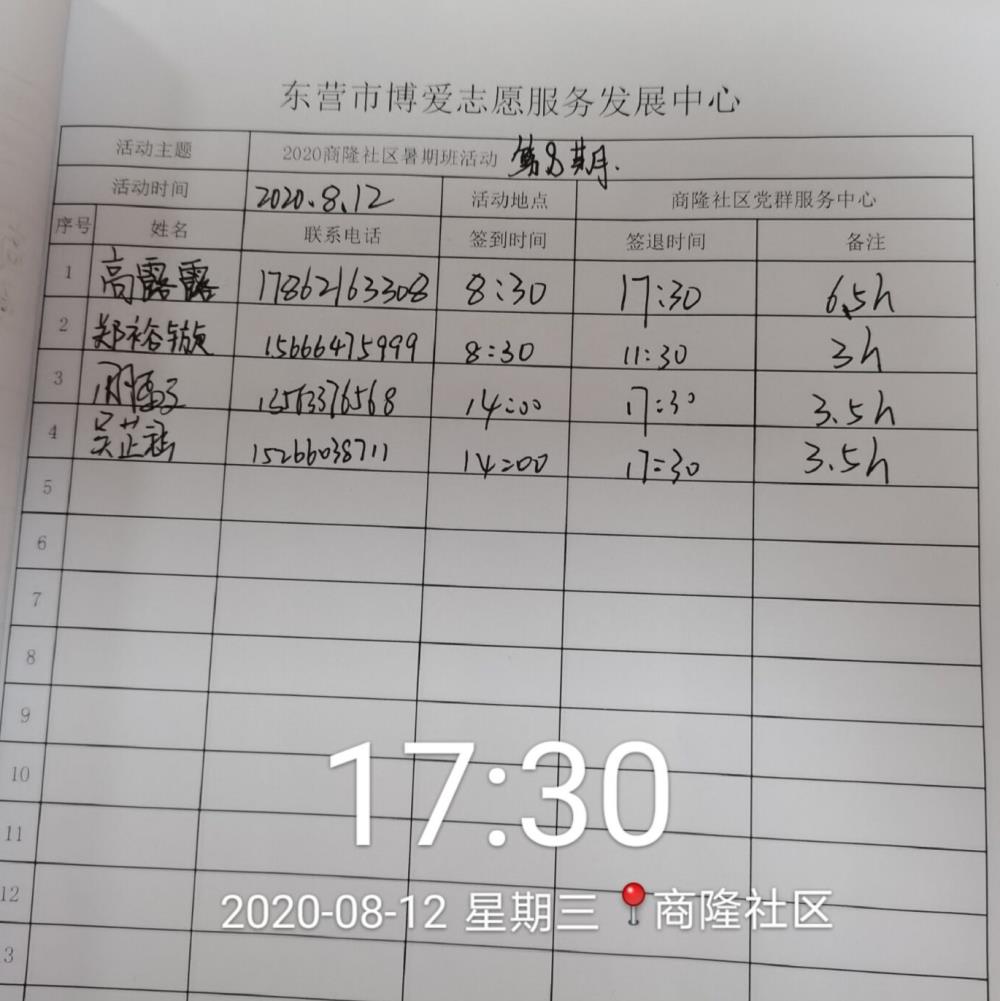 东营市博爱志愿服务发展中心
活动主题 2020商隆社区暑期班活动 第8期.
活动时间 2020.8.12 活动地点 商隆社区党群服务中心
序号 姓名 联系电话 签到时间 签退时间 备注
1 高露露 17862163308 8:30 17:30 6.5h
2 郑裕 15666475999 8:30 11:30 3h
3 13563376568 14:00 17:30 3.5h
4 吴芷涵 15266038711 14:00 17:30 3.5h
5
6
7
8
9
10
11
12
3
17:30
2020-08-12 星期三 商隆社区